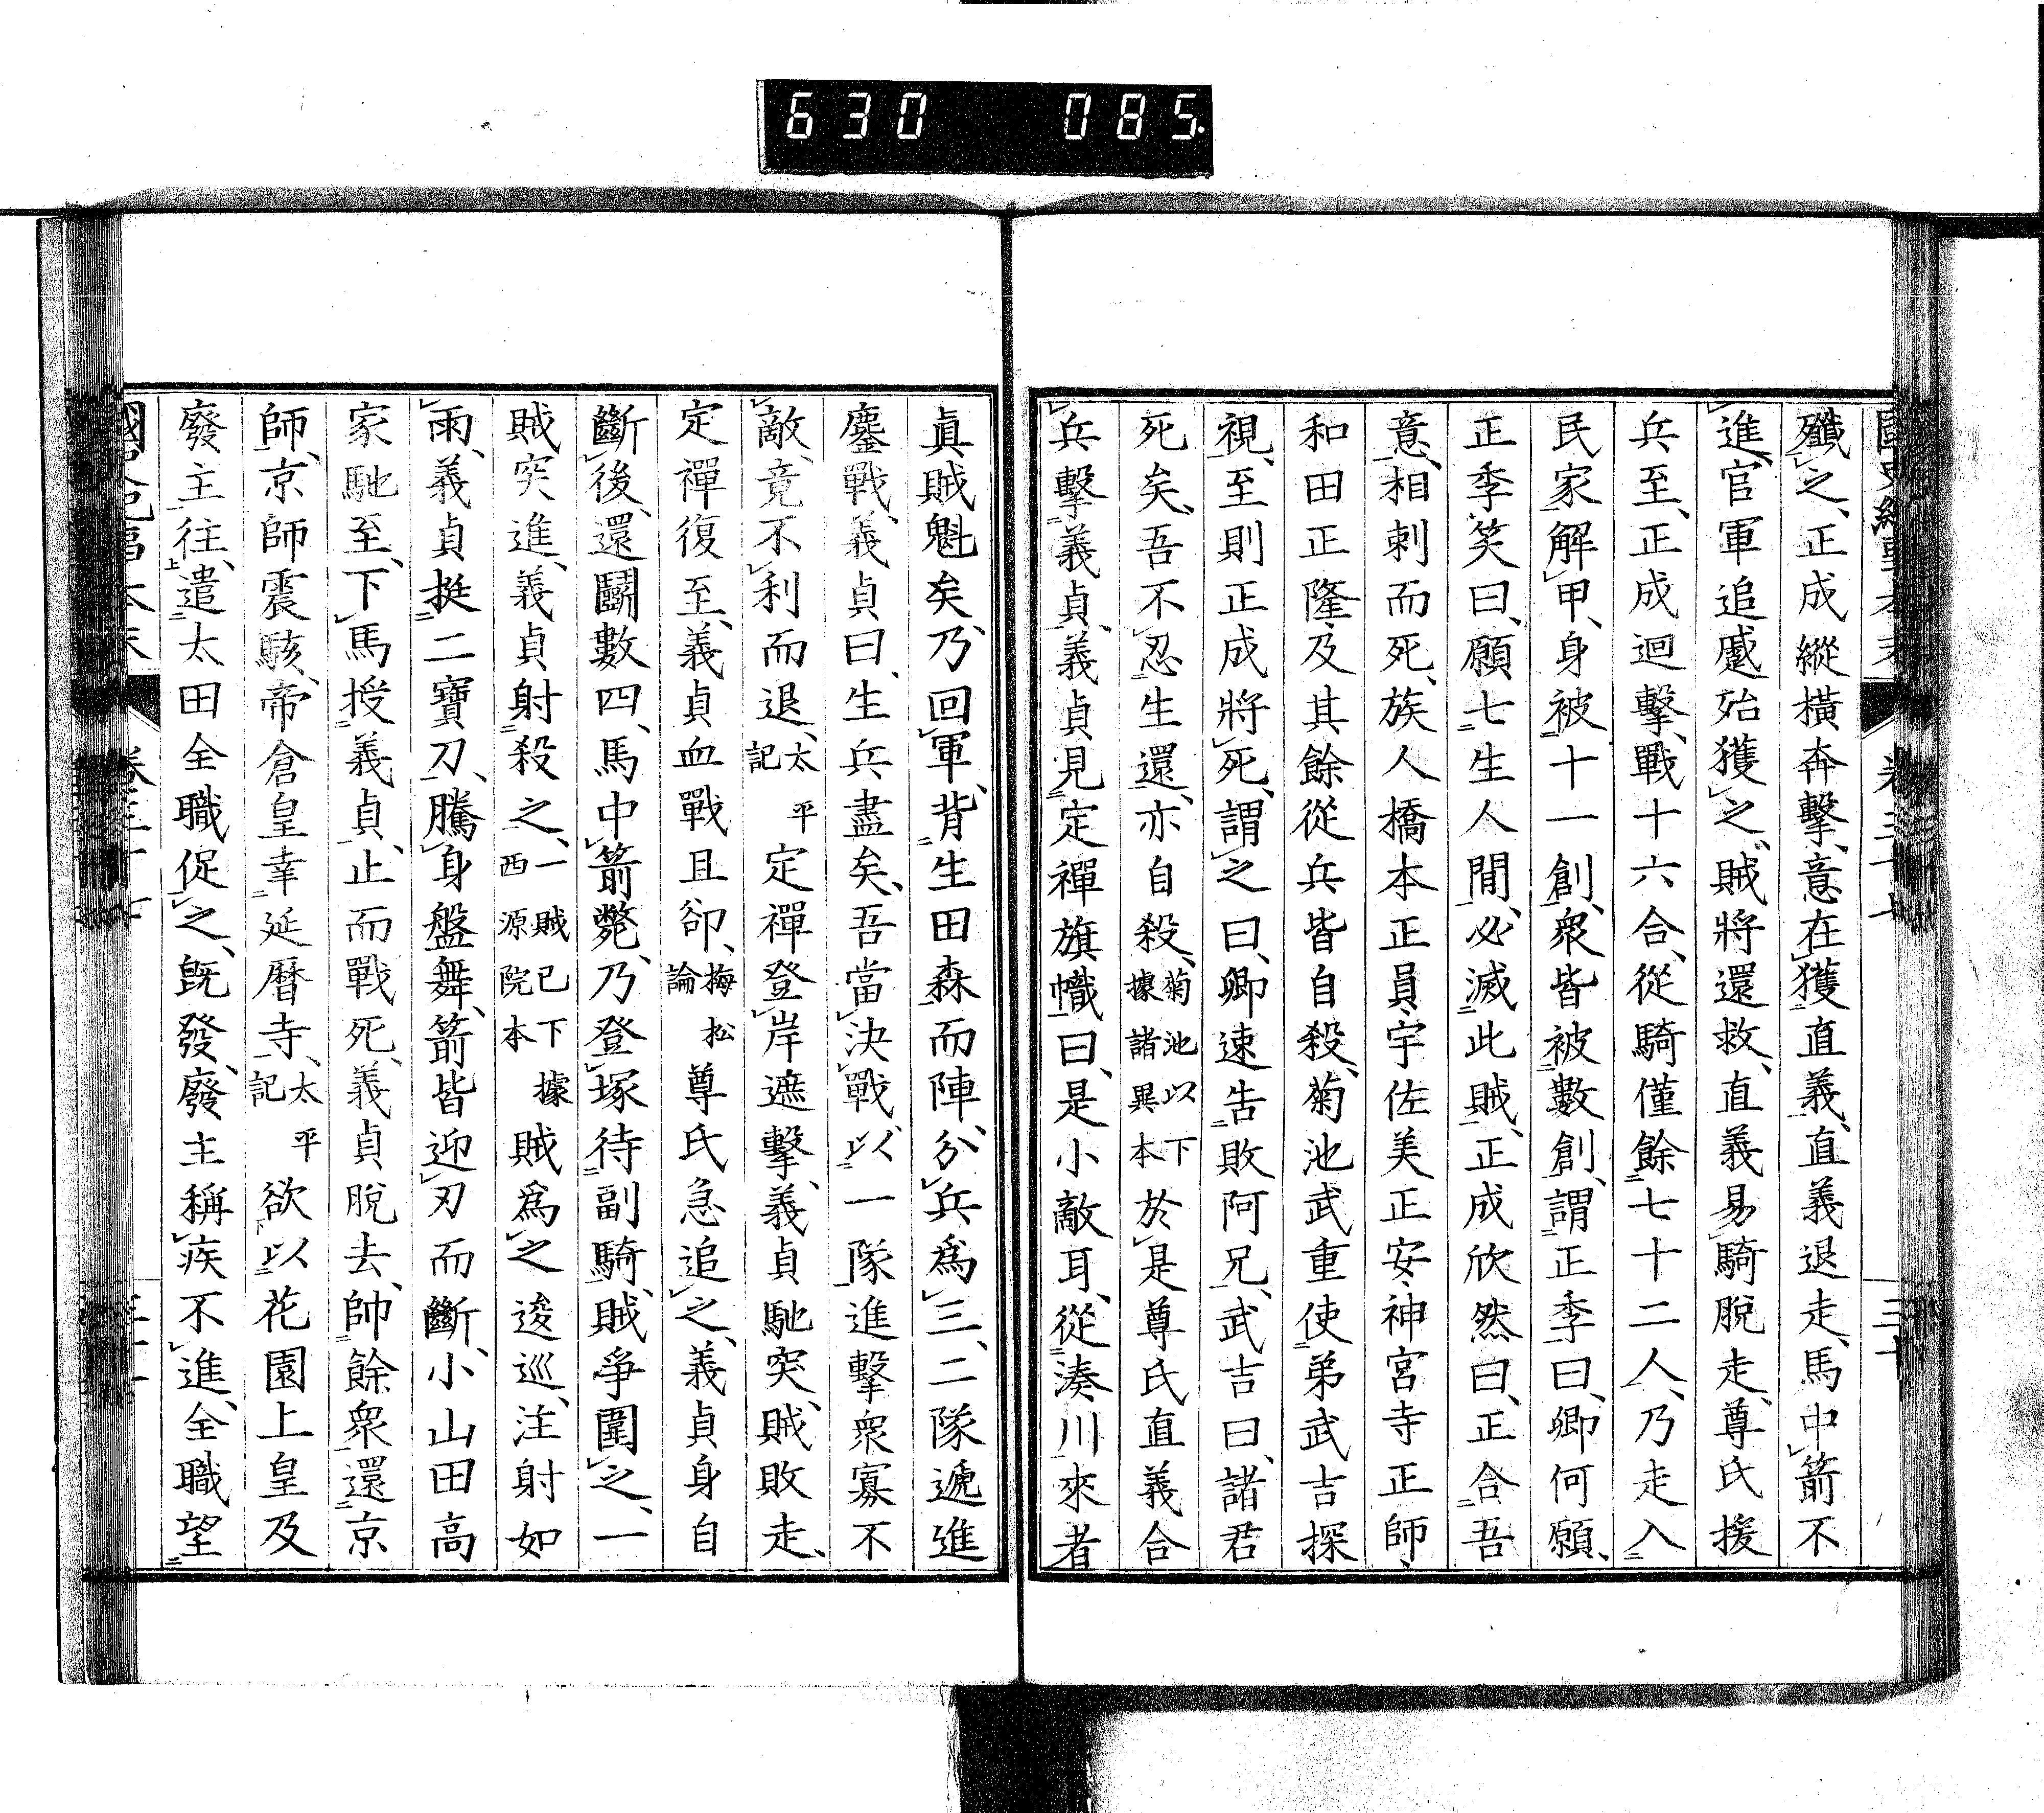 630 085
殲之、正成縱橫奔擊、意在獲直義、直義退走、馬中箭不
進、官軍追蹙殆獲之、賊將還救、直義易騎脫走、尊氏援
兵至、正成迴擊、戰十六合、從騎僅餘七十二人、乃走入
民家解甲、身被十一創、衆皆被數創、謂正季曰、卿何願、
正季笑曰、願七生人間、必滅此賊、正成欣然曰、正合吾
意、相刺而死、族人橋本正員、宇佐美正安、神宮寺正師、
和田正隆、及其餘從兵皆自殺、菊池武重使弟武吉探
視、至則正成將死、謂之曰、卿速告敗阿兄、武吉曰、諸君
死矣、吾不忍生還、亦自殺、菊池以下據諸異本於是尊氏直義合
兵擊義貞、義貞見定禪旗幟曰、是小敵耳、從湊川來者
眞賊魁矣、乃回軍、背生田森而陣、分兵爲三、二隊遞進
鏖戰、義貞曰、生兵盡矣、吾當決戰、以一隊進擊衆寡不
敵、竟不利而退、太平記定禪登岸遮擊、義貞馳突、賊敗走、
定禪復至、義貞血戰且卻、梅松論尊氏急追之、義貞身自
斷後、還鬭數四、馬中箭斃、乃登塚待副騎、賊爭圍之、一
賊突進、義貞射殺之、一賊已下據西源院本賊爲之逡巡、注射如
雨、義貞挺二寶刀、騰身盤舞、箭皆迎刃而斷、小山田高
家馳至、下馬授義貞、止而戰死、義貞脫去、帥餘衆還京
師、京師震駭、帝倉皇幸延曆寺、太平記欲以花園上皇及
廢主往、遣太田全職促之、旣發、廢主稱疾不進、全職望